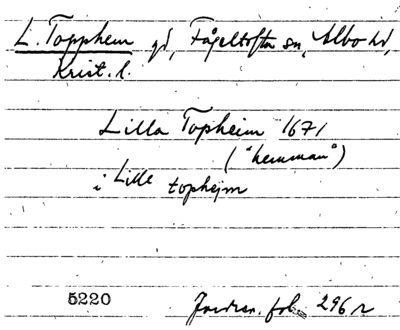 L. Toppheim gd, Fågeltofta sn, Albo hd,
Krist. l.
Lilla Topheim 1671
("hemman")
i Lille topheim
5220 Jordrev. fol. 296 r